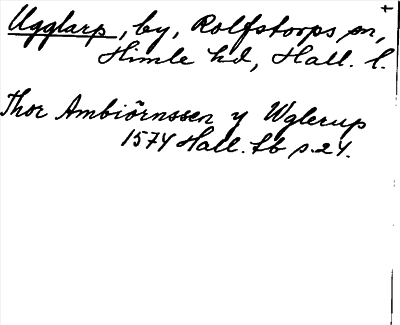 Ugglarp, by, Rolfstorps sn,
Himle hd, Hall. l.
Thor Ambiörnssen y Wglerup
1574 Hall. Lb s. 24.